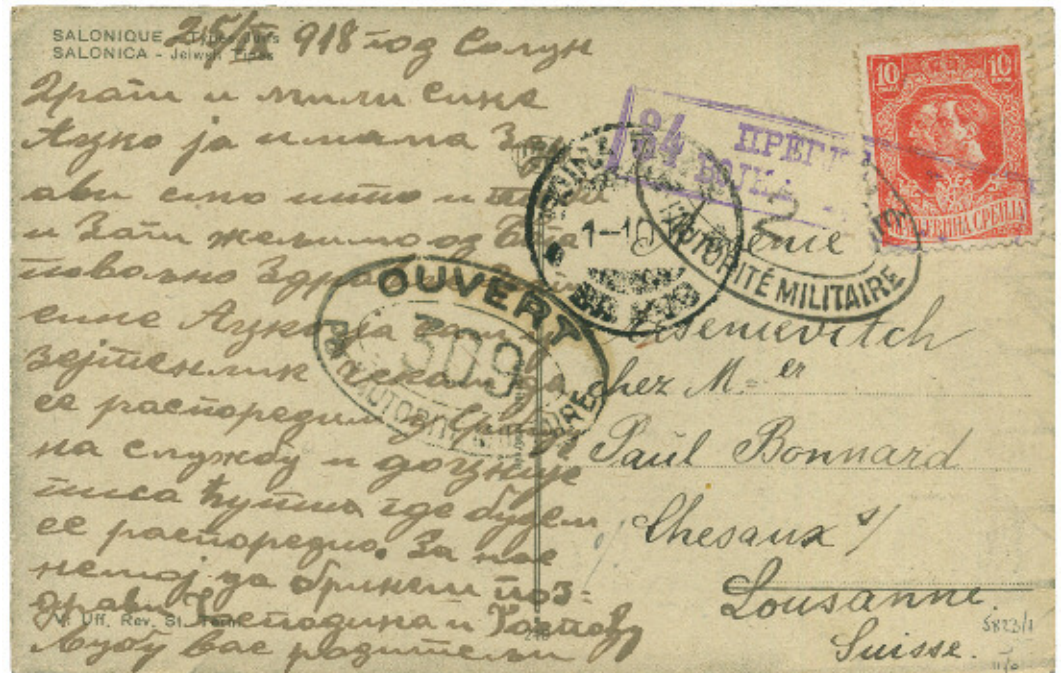 SALONIQUE - Types Juifs
SALONICA - Jeiweh Types
25/IX 918 год Солун
Драги и мили сине
Ацко ја и мама здр
ави смо што и теби
и Зати желимо од Бога
повољно здравље
сине Ацко ја сам у
Зејтенлик чекам да
се распоредим у
на службу и доцније
писа ћути где будем
се распоредио. За нас
немој да бринеш поз=
драви Господина и Госпођу
Љубу вас родитељи
N. Uff. Rev. St.
OUVERT
309
AUTORITÉ MILITAIRE
84 ПРЕГЛ
ВОЈН
1-10
AUTORITÉ MILITAIRE
10 10
КРАЉЕВИНА СРБИЈА
Arsenievitch
chez M=er
Paul Bonnard
Chesaux s/
Lousanne.
Suisse.
5823/1